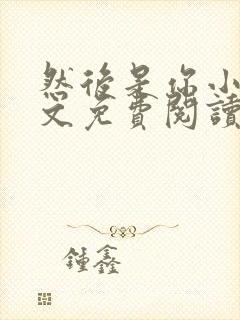 然後是你小
文免費閱讀
鍾鑫